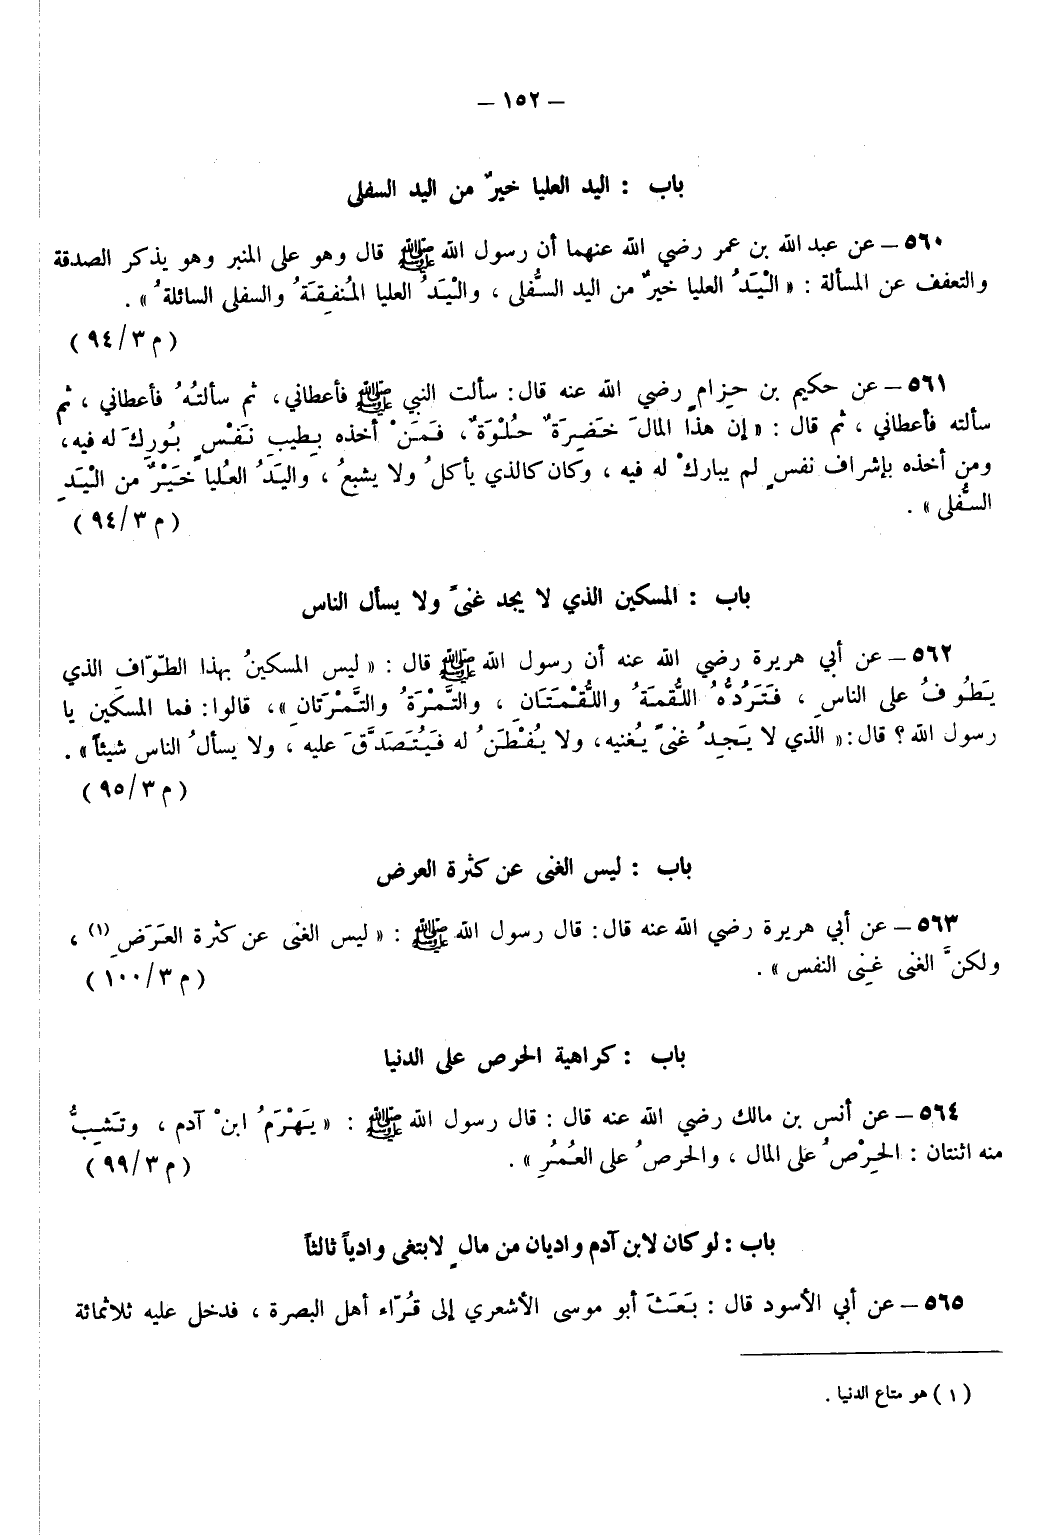 – ١٥٢ –
باب : اليد العليا خيرٌ من اليد السفلى
٥٦٠ – عن عبد الله بن عمر رضي الله عنهما أن رسول الله ﷺ قال وهو على المنبر وهو يذكر الصدقة
والتعفف عن المسألة : « الْيَدُ العليا خيرٌ من اليد السُّفلى ، والْيَدُ العليا المُنفِقَةُ والسفلى السائلةُ » .
( م ٣/ ٩٤ )
٥٦١ – عن حكيم بن حِزامٍ رضي الله عنه قال : سألت النبي ﷺ فأعطاني ، ثم سألتُهُ فأعطاني ، ثم
سألته فأعطاني ، ثم قال : « إن هذا المالَ خَضِرَةٌ حُلْوَةٌ ، فَمَنْ أخذه بِطيبِ نَفْسٍ بُورِكَ له فيه ،
ومن أخذه بإشراف نفسٍ لم يباركْ له فيه ، وكان كالذي يأكلُ ولا يشبعُ ، واليَدُ العُليا خَيْرٌ من الْيَدِ
السُّفلى » .
( م ٣/ ٩٤ )
باب : المسكين الذي لا يجد غنىً ولا يسأل الناس
٥٦٢ – عن أبي هريرة رضي الله عنه أن رسول الله ﷺ قال : « ليس المسكينُ بهذا الطّوّافِ الذي
يَطُوفُ على الناسِ ، فَتَرُدُّهُ اللُّقمَةُ واللُّقْمَتَانِ ، والتَّمْرَةُ والتَّمْرَتان » ، قالوا : فما المسكين يا
رسول الله ؟ قال : « الذي لا يَجِدُ غنىً يُغنيه ، ولا يُفْطَنُ له فَيُتَصَدَّقَ عليه ، ولا يسألُ الناس شيئاً » .
( م ٣/ ٩٥ )
باب : ليس الغنى عن كثرة العرض
٥٦٣ – عن أبي هريرة رضي الله عنه قال : قال رسول الله ﷺ : « ليس الغنى عن كثرة العَرَضِ (١) ،
ولكنَّ الغنى غِنى النفس » .
( م ٣/ ١٠٠ )
باب : كراهية الحرص على الدنيا
٥٦٤ – عن أنس بن مالك رضي الله عنه قال : قال رسول الله ﷺ : « يَهْرَمُ ابنْ آدم ، وتَشِبُّ
منه اثنتان : الحِرْصُ على المال ، والحرصُ على العُمُرِ » .
( م ٣/ ٩٩ )
باب : لو كان لابن آدم واديان من مالٍ لابتغى وادياً ثالثاً
٥٦٥ – عن أبي الأسود قال : بَعَثَ أبو موسى الأشعري إلى قُرّاء أهل البصرة ، فدخل عليه ثلاثمائة
( ١ ) هو متاع الدنيا .